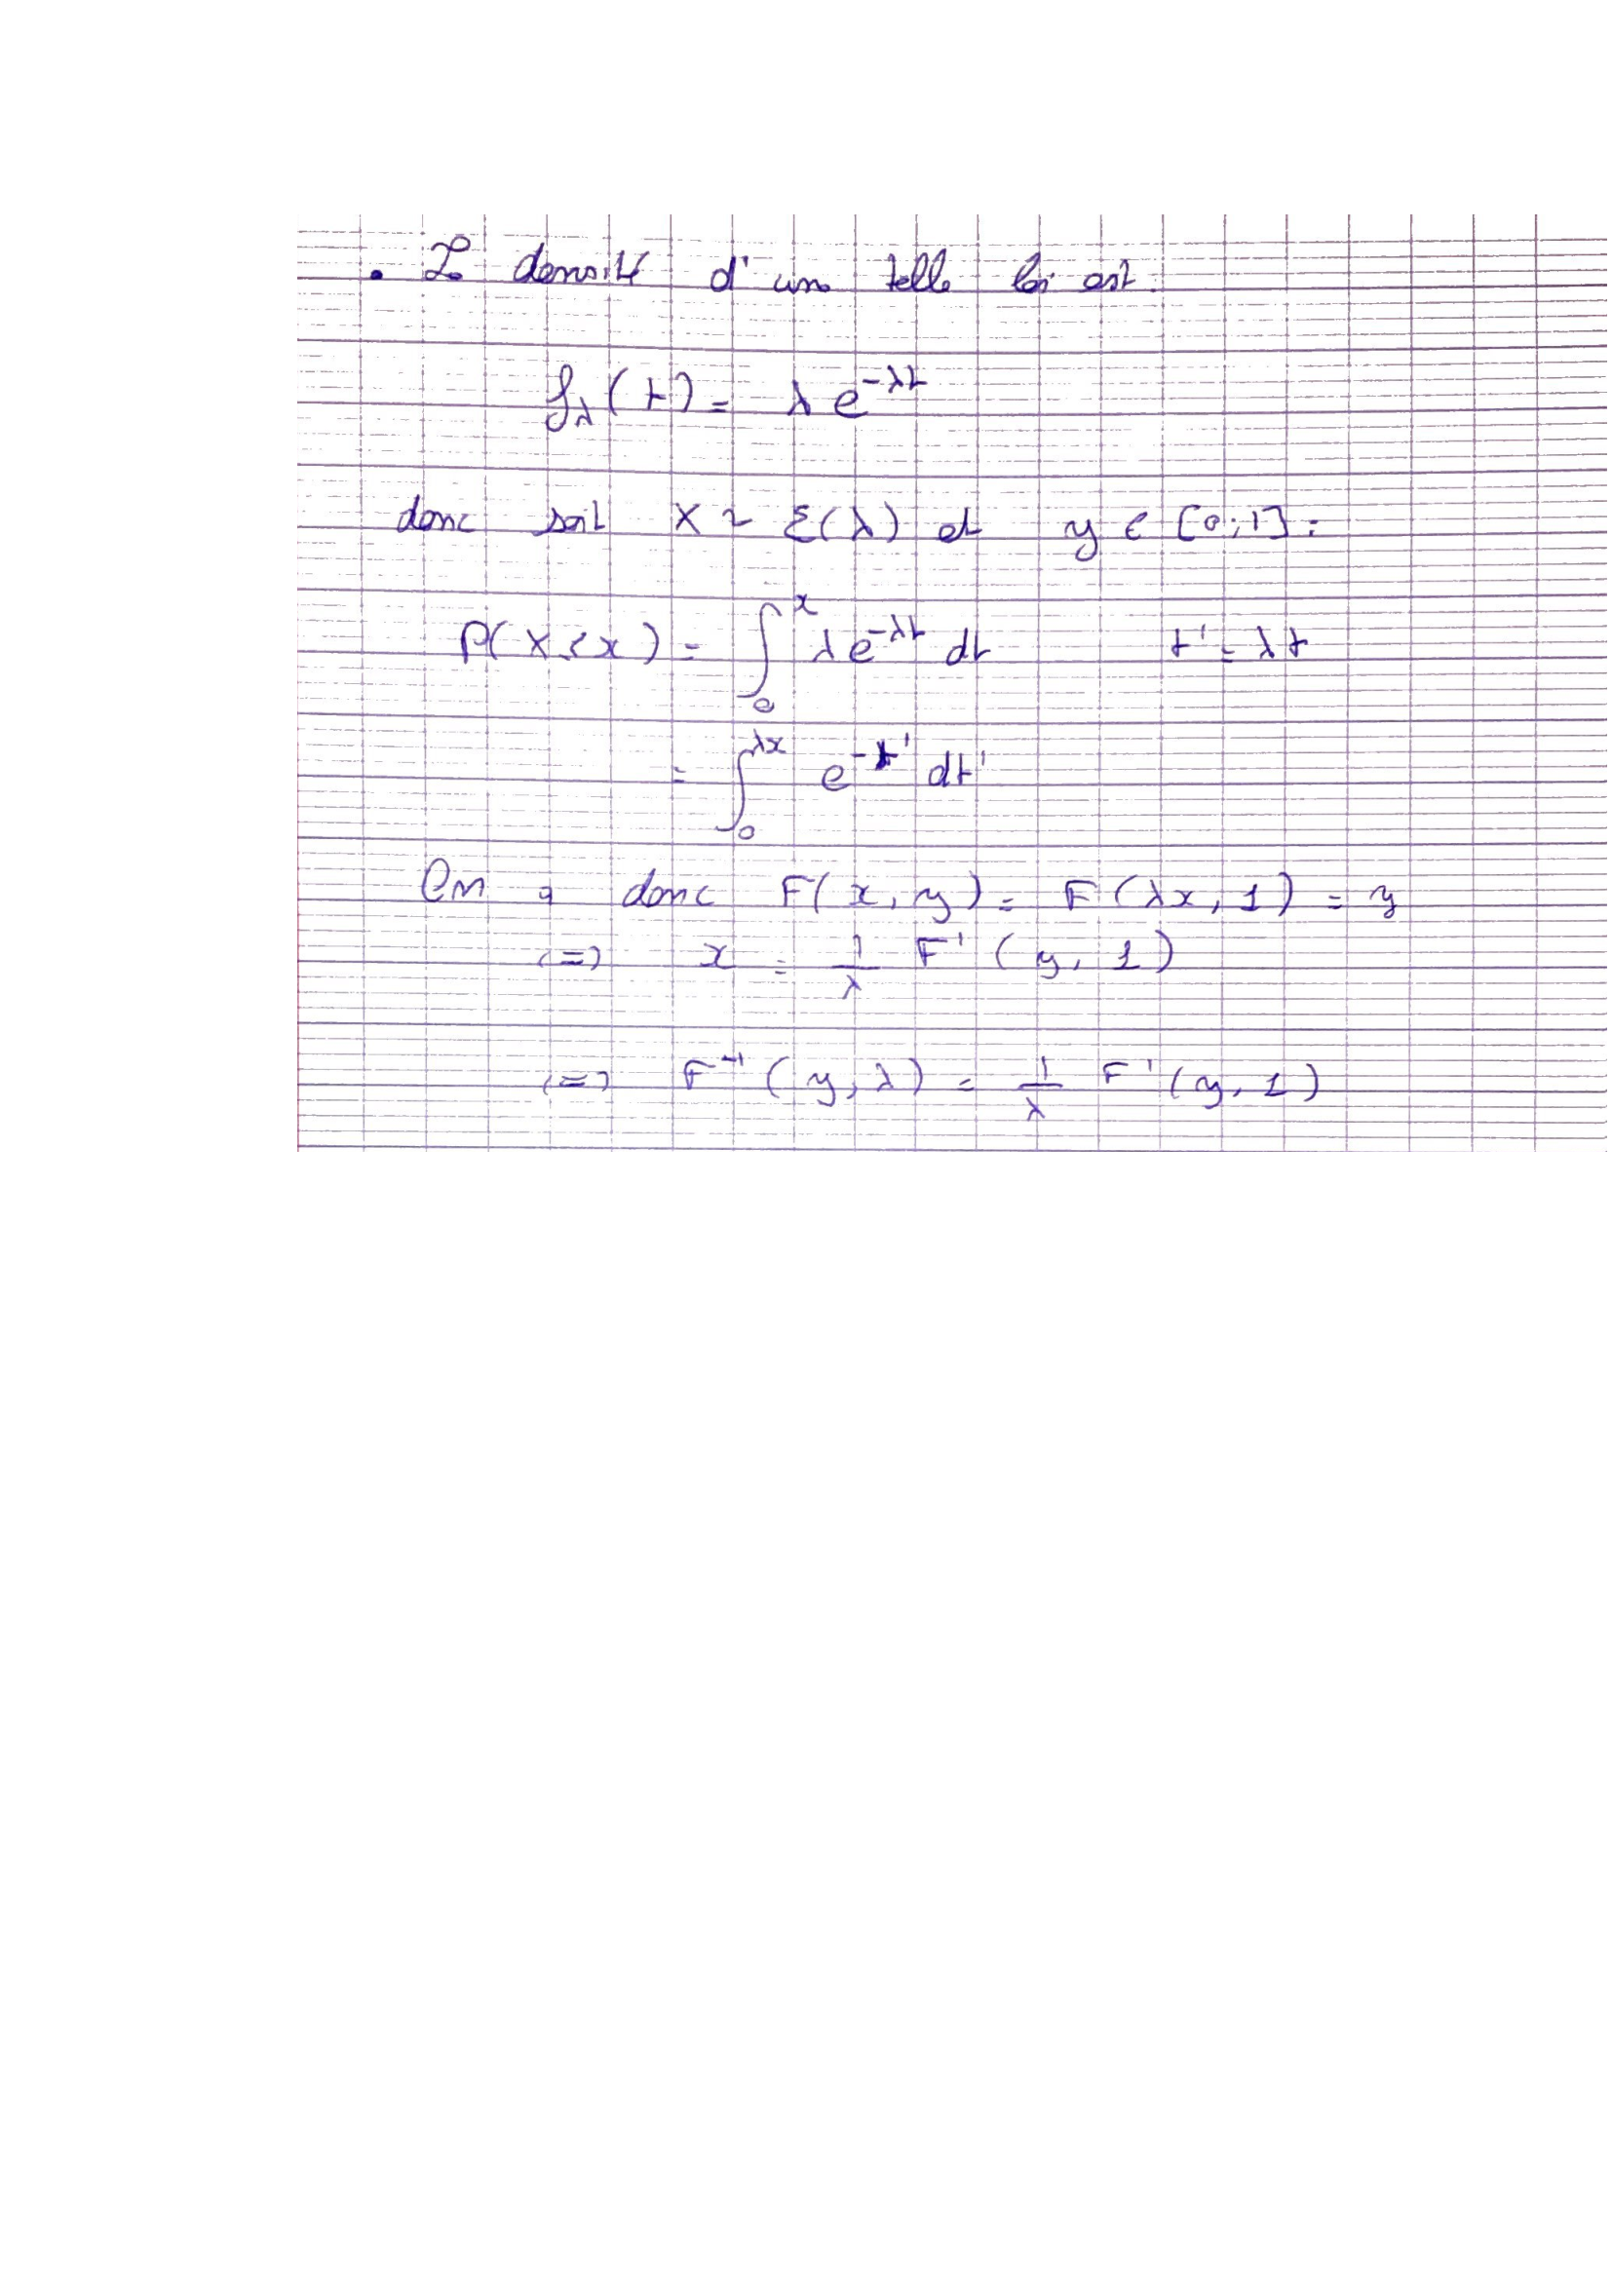 . La densité d'une telle loi est :
f_λ(t) = λ e^{-λt}
donc soit X ~ ε(λ) et y ∈ [0;1] :
P(X ≤ x) = ∫_0^x λ e^{-λt} dt t' = λt
= ∫_0^{λx} e^{-t'} dt'
On a donc F(x, y) = F(λx, 1) = y
(=) x = 1/λ F'(y, 1)
(=) F^{-1}(y, λ) = 1/λ F'(y, 1)